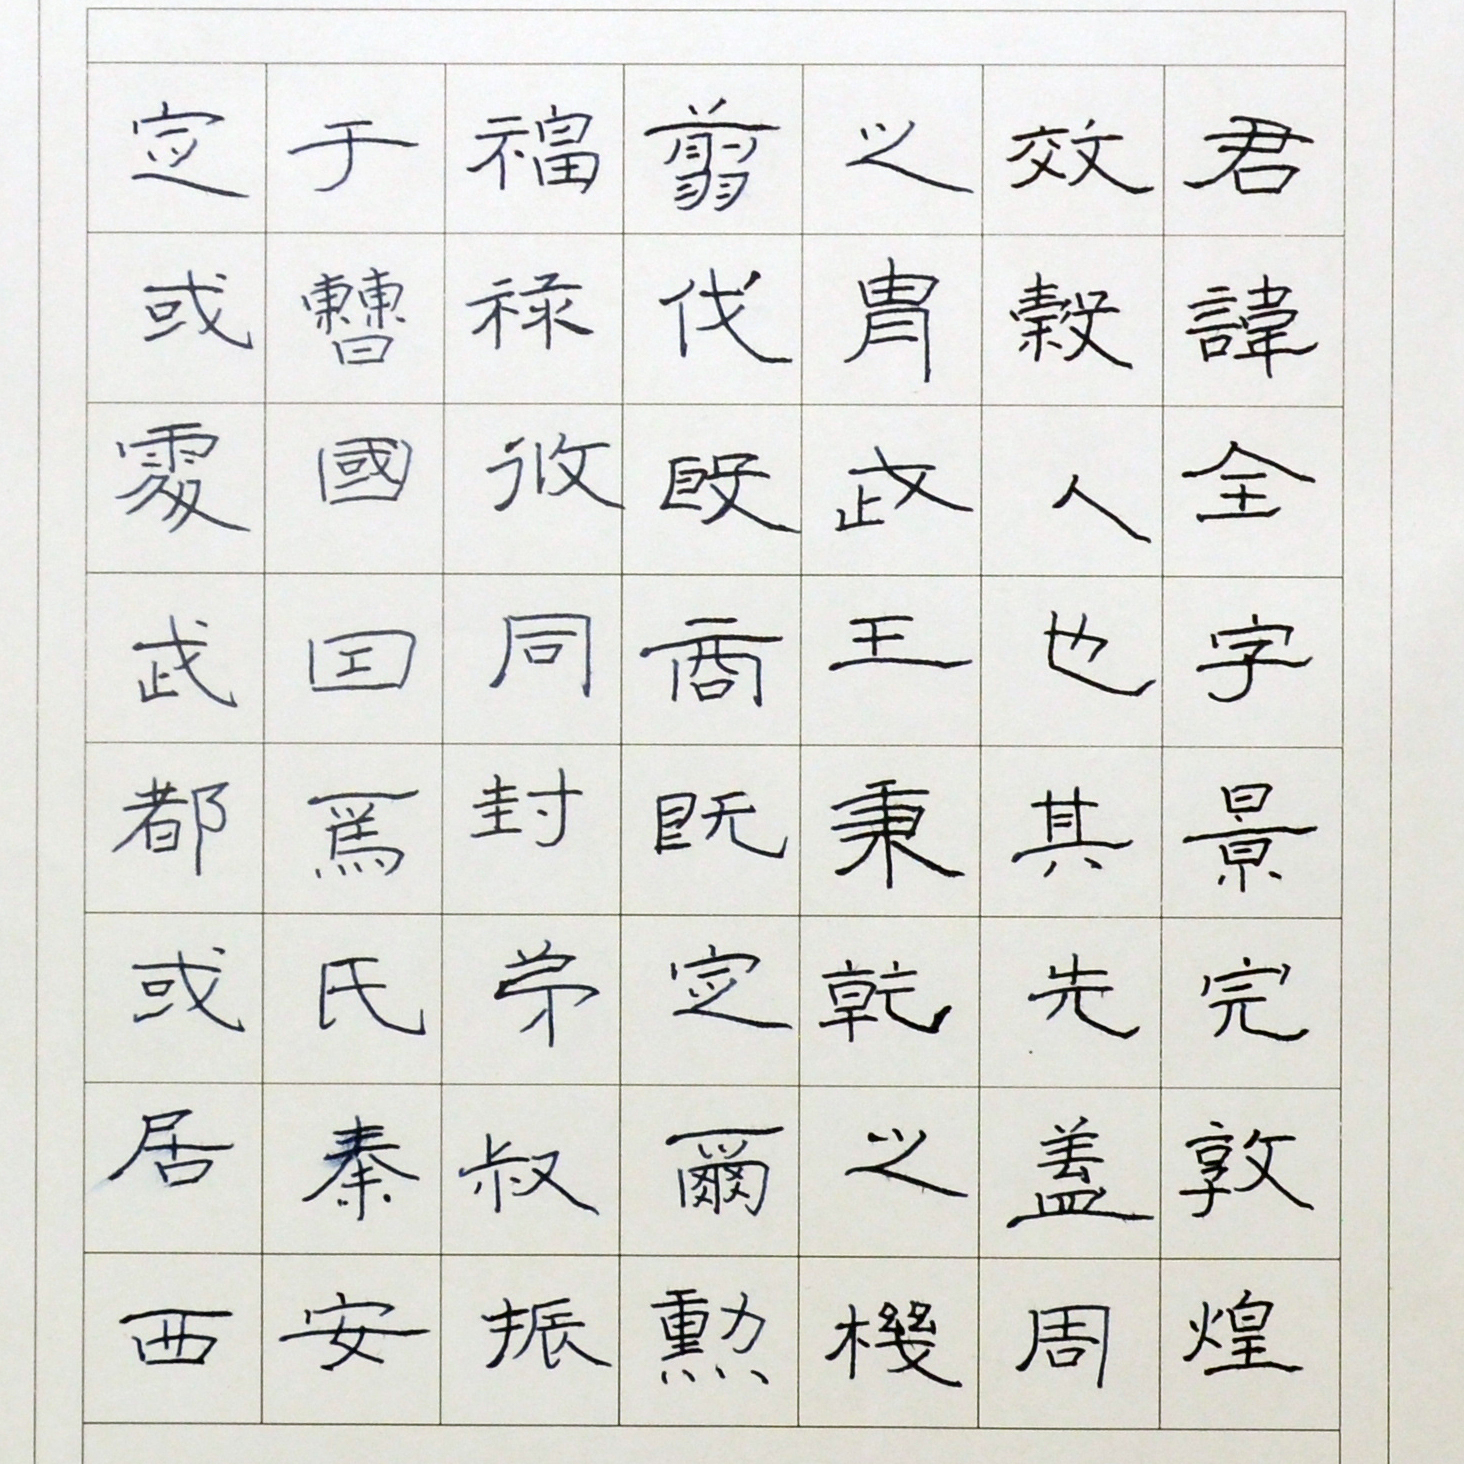 君諱全字景完敦煌
效穀人也其先蓋周
之胄武王秉乾之機
翦伐殷商既定爾勲
福禄攸同封弟叔振
于曹國因為氏焉秦安
定或處武都或居西